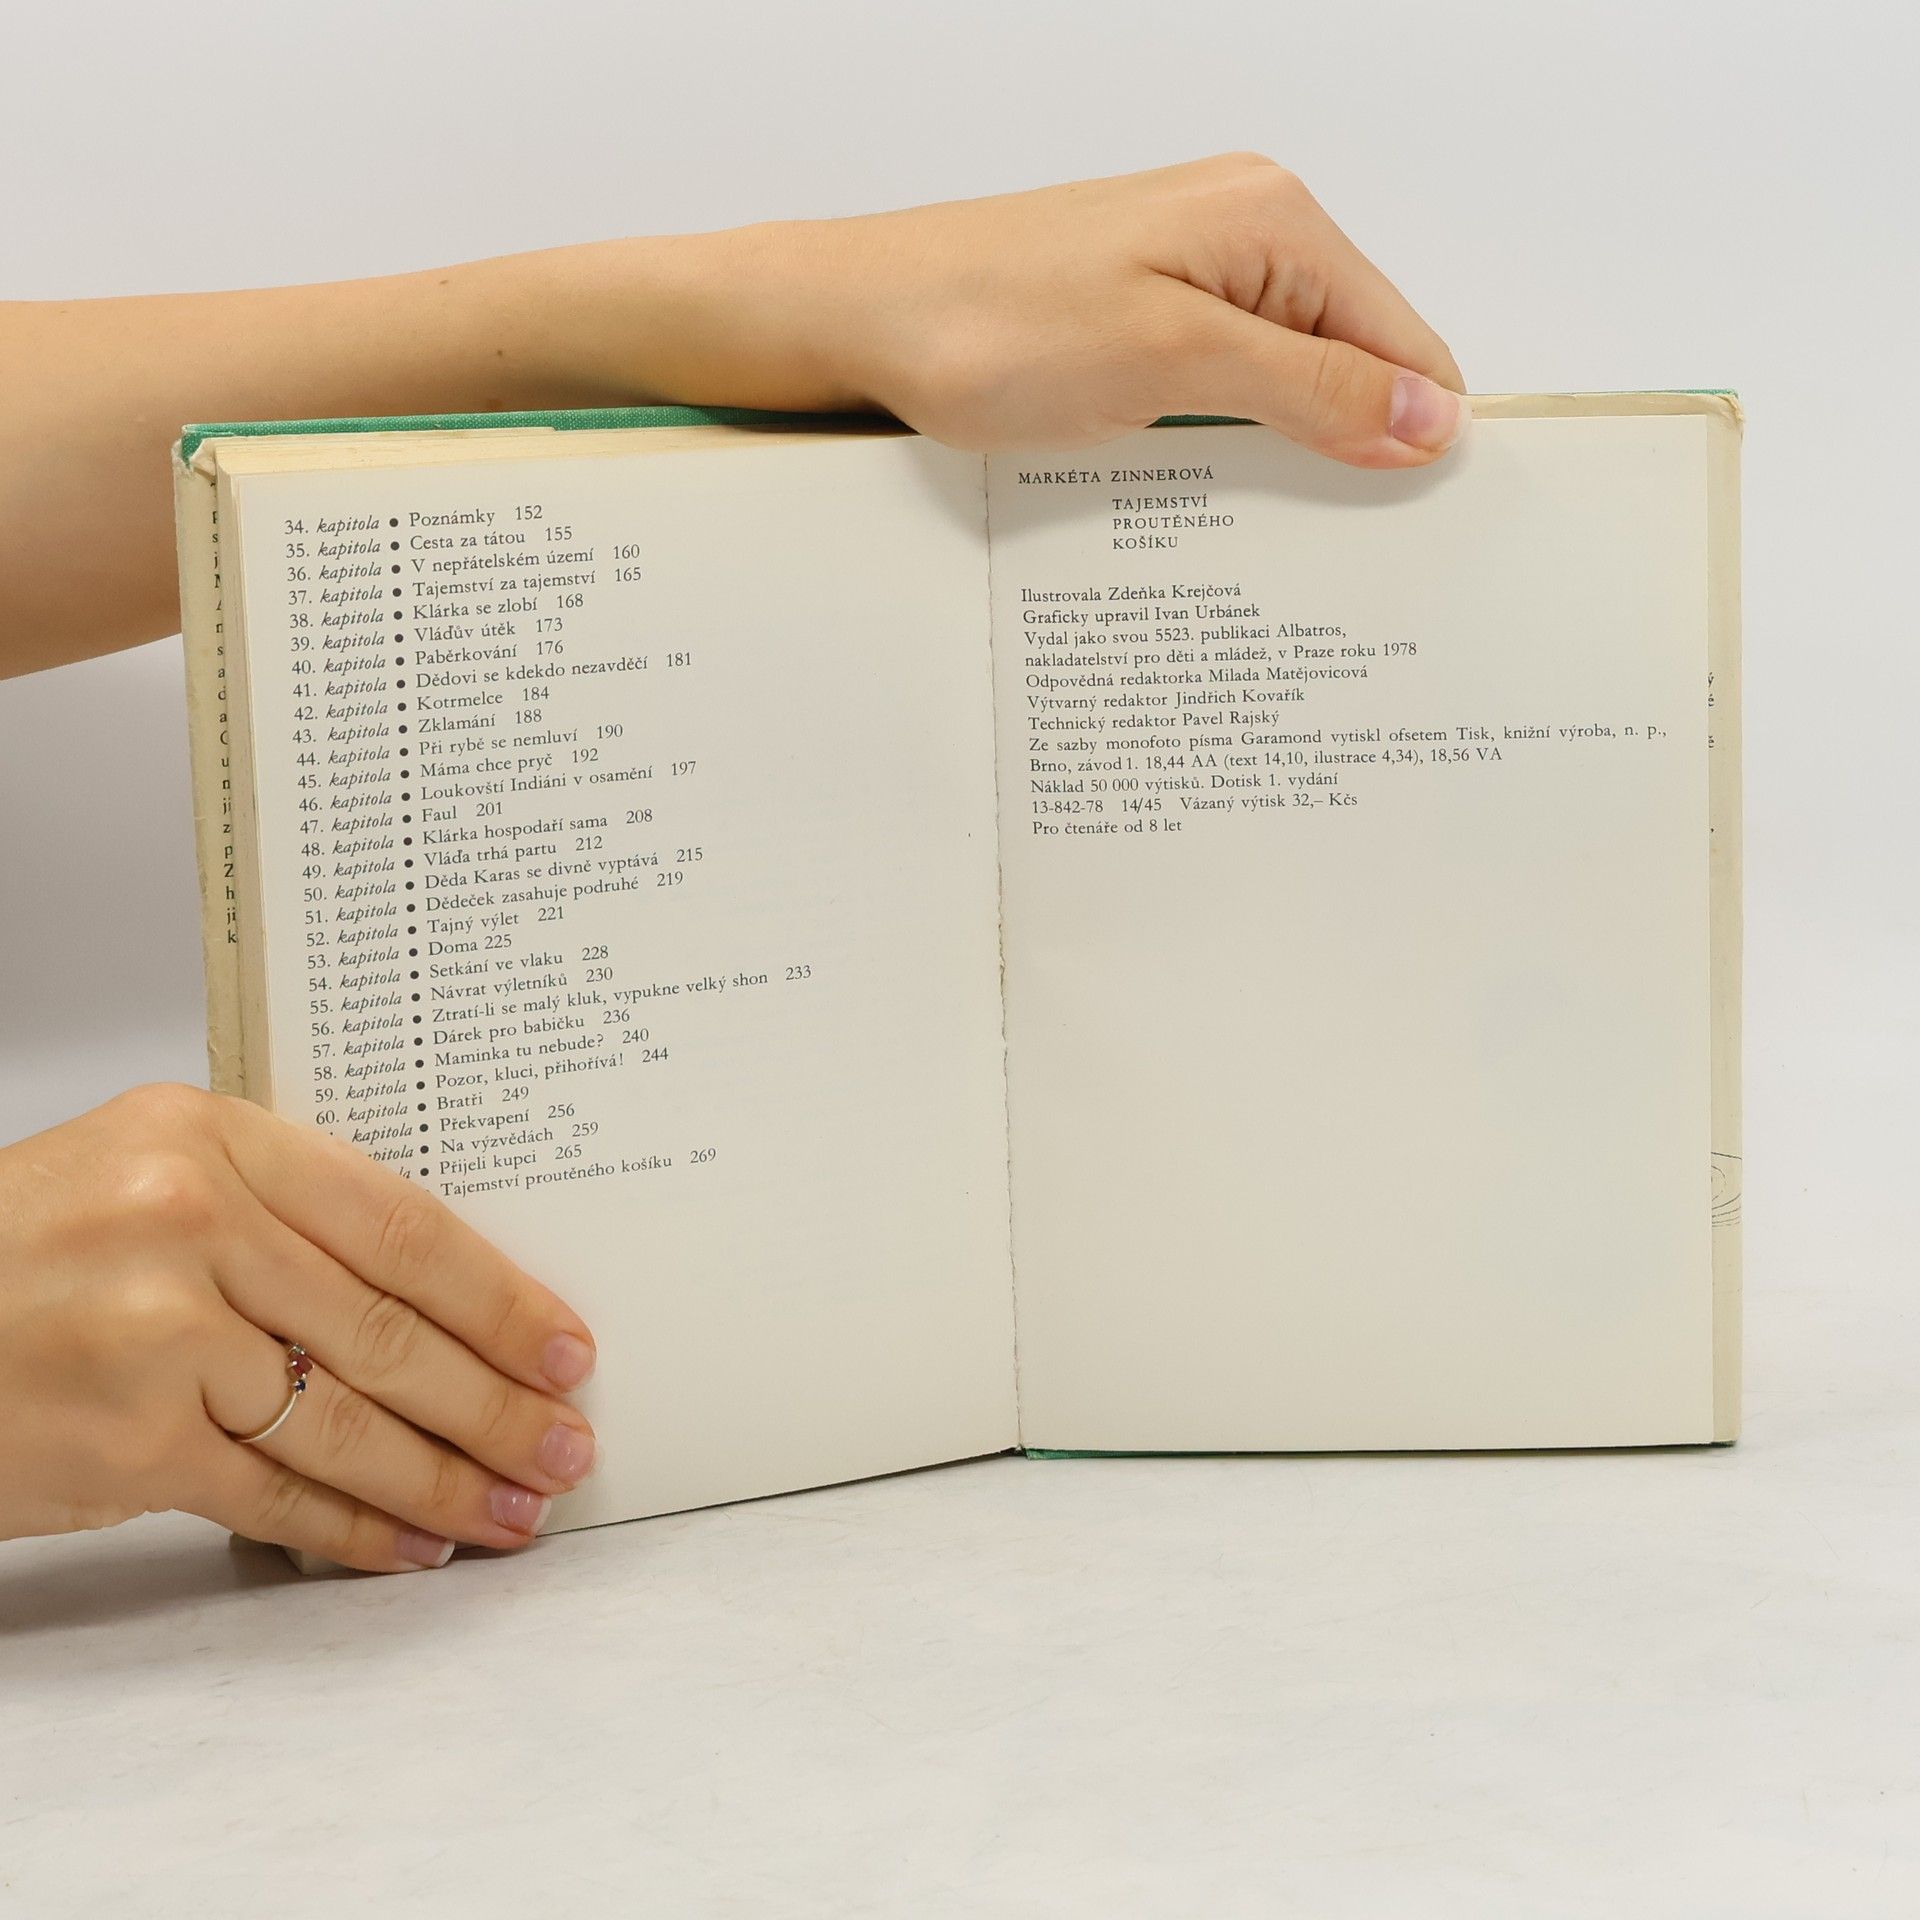 34. kapitola ● Poznámky 152
35. kapitola ● Cesta za tátou 155
36. kapitola ● V nepřátelském území 160
37. kapitola ● Tajemství za tajemství 165
38. kapitola ● Klárka se zlobí 168
39. kapitola ● Vláďův útěk 173
40. kapitola ● Paběrkování 176
41. kapitola ● Dědovi se kdekdo nezavděčí 181
42. kapitola ● Kotrmelce 184
43. kapitola ● Zklamání 188
44. kapitola ● Při rybě se nemluví 190
45. kapitola ● Máma chce pryč 192
46. kapitola ● Loukovští Indiáni v osamění 197
47. kapitola ● Faul 201
48. kapitola ● Klárka hospodaří sama 208
49. kapitola ● Vláďa trhá partu 212
50. kapitola ● Děda Karas se divně vyptává 215
51. kapitola ● Dědeček zasahuje podruhé 219
52. kapitola ● Tajný výlet 221
53. kapitola ● Doma 225
54. kapitola ● Setkání ve vlaku 228
55. kapitola ● Návrat výletníků 230
56. kapitola ● Ztratí-li se malý kluk, vypukne velký shon 233
57. kapitola ● Dárek pro babičku 236
58. kapitola ● Maminka tu nebude? 240
59. kapitola ● Pozor, kluci, přihořívá! 244
60. kapitola ● Bratři 249
kapitola ● Překvapení 256
● Na výzvědách 259
● Přijeli kupci 265
Tajemství proutěného košíku 269
MARKÉTA ZINNEROVÁ
TAJEMSTVÍ
PROUTĚNÉHO
KOŠÍKU
Ilustrovala Zdeňka Krejčová
Graficky upravil Ivan Urbánek
Vydal jako svou 5523. publikaci Albatros,
nakladatelství pro děti a mládež, v Praze roku 1978
Odpovědná redaktorka Milada Matějovicová
Výtvarný redaktor Jindřich Kovařík
Technický redaktor Pavel Rajský
Ze sazby monofoto písma Garamond vytiskl ofsetem Tisk, knižní výroba, n. p.,
Brno, závod 1. 18,44 AA (text 14,10, ilustrace 4,34), 18,56 VA
Náklad 50 000 výtisků. Dotisk 1. vydání
13-842-78 14/45 Vázaný výtisk 32,– Kčs
Pro čtenáře od 8 let